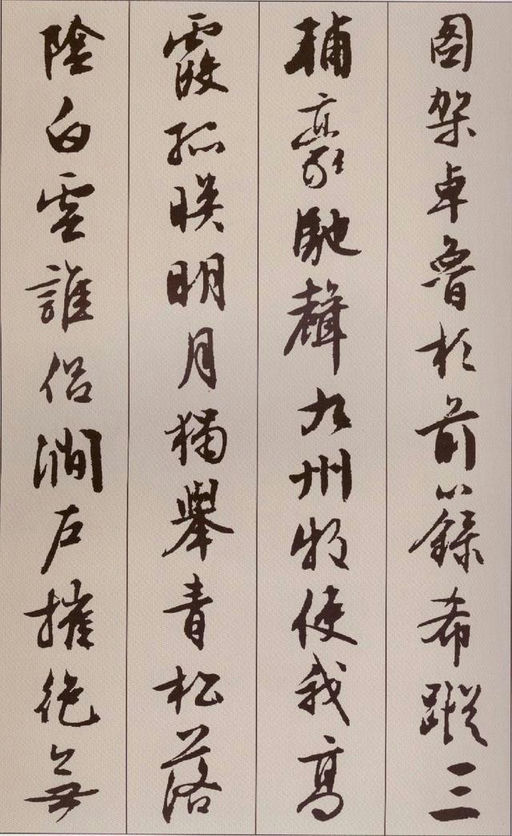 图架卓魯於前籙希蹤三
輔豪馳聲九州牧使我高
霞孤映明月獨舉青松落
陰白雲誰侶澗戶摧絕無